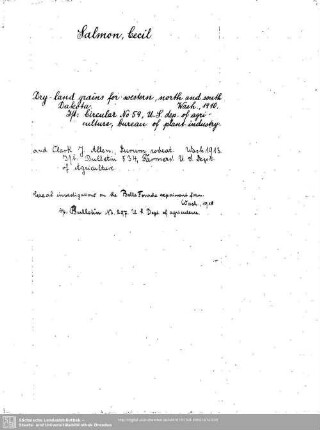 Salmon, Cecil
Dry-land grains for western, north and south
Dakota. Wash., 1910.
Circular No 59, U. S. dep. of agri-
culture, bureau of plant industry.
and Clark J. Allen, robert. Wash 1913.
Bulletin 534, Farmers U. S. Dept.
of Agriculture
investigations on the Belle Fourche experiment farm.
Wash., 19
Bulletin No. 297. U S Dept. of agriculture.
Sächsische Landesbibliothek -
Staats- und Universitätsbibliothek Dresden